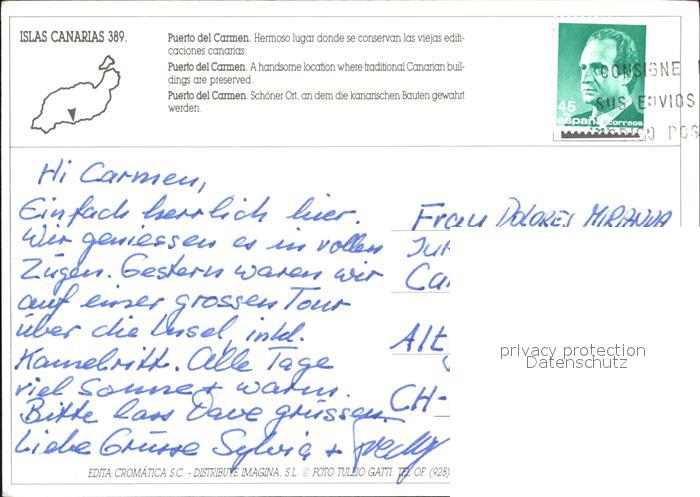 ISLAS CANARIAS 389.
Puerto del Carmen. Hermoso lugar donde se conservan las viejas edifi-
caciones canarias.
Puerto del Carmen. A handsome location where traditional Canarian buil-
dings are preserved.
Puerto del Carmen. Schöner Ort, an dem die kanarischen Bauten gewahrt
werden.
45
españa correos
CONSIGNE
SUS ENVIOS
POS
Hi Carmen,
Einfach herrlich hier.
Wir geniessen es in vollen
Zügen. Gestern waren wir
auf einer grossen Tour
über die Insel, inkl.
Kamelritt. Alle Tage
viel Sonne + warm.
Bitte lass Dave grüssen.
Liebe Grüsse Sylvia + Fredy
Frau DOLORES MIRANDA
Alt
CH-
privacy protection
Datenschutz
EDITA CROMÁTICA S.C. - DISTRIBUYE IMAGINA, S.L. © FOTO TULLIO GATTI. TEL OF (928)